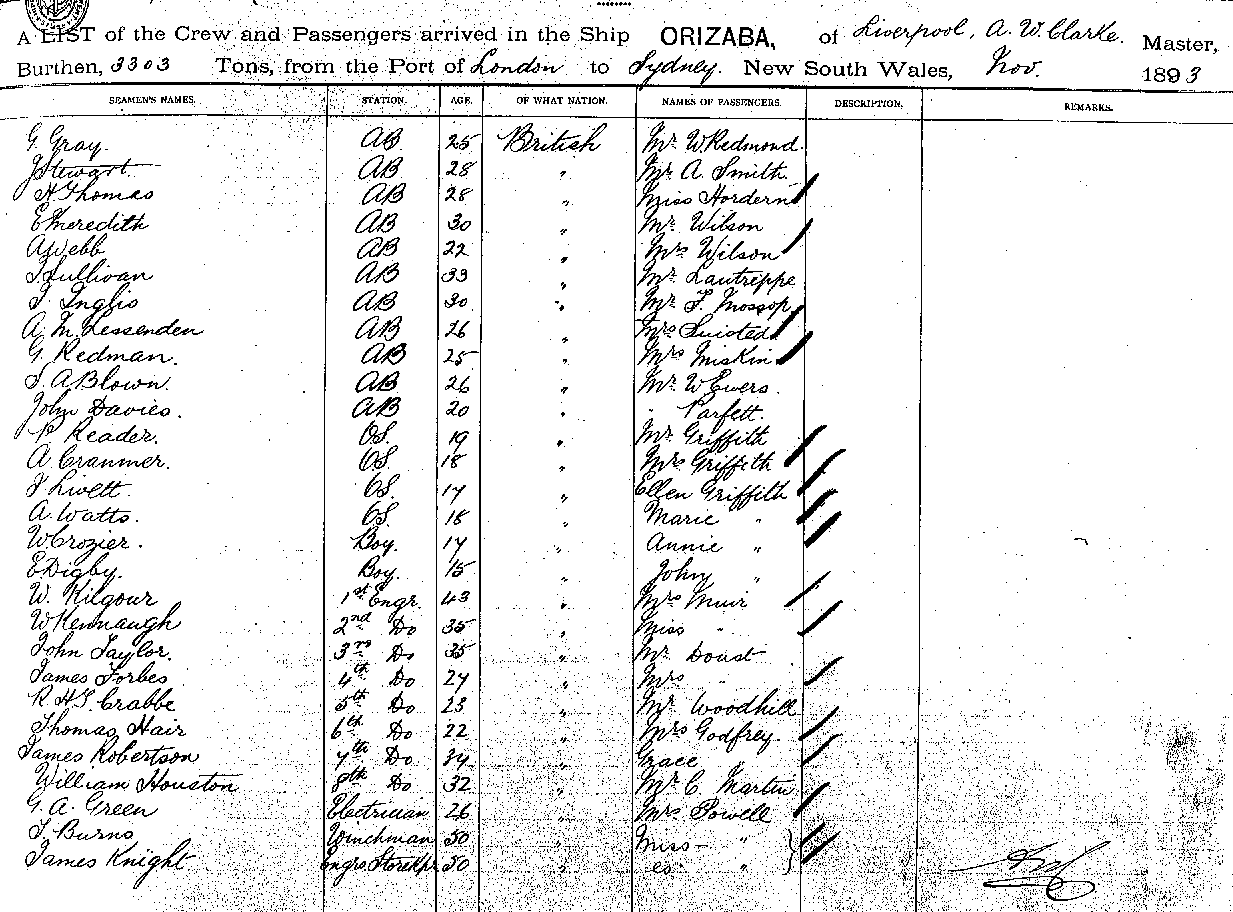 A LIST of the Crew and Passengers arrived in the Ship ORIZABA, of Liverpool, A. W. Clarke. Master,
Burthen, 3303 Tons, from the Port of London to Sydney. New South Wales, Nov. 1893
SEAMEN'S NAMES. STATION. AGE. OF WHAT NATION. NAMES OF PASSENGERS. DESCRIPTION. REMARKS.
G. Gray. AB 25 British Mr. W Redmond.
J Stewart. AB 28 " Mr. A. Smith.
H Thomas AB 28 " Miss Hordern
E Meredith AB 30 " Mr. Wilson
A Webb AB 22 " Mrs Wilson
J. Sullivan AB 33 " Mr. Lautreppe
J. Inglis AB 30 " Mr. F. Mossop
A. M. Lessenden AB 26 " Mrs Suisted
G. Redman. AB 25 " Mrs Miskin
J. A Blown. AB 26 " Mr. W Ewers.
John Davies. AB 20 " " Parfett.
P. Reader. OS. 19 " Mr. Griffith
A. Cranmer. OS. 18 " Mrs Griffith
J Livett. OS. 17 " Ellen Griffith
A. Watts. OS. 18 " Marie "
W Crozier. Boy. 17 " Annie "
E Digby. Boy. 15 " John "
W. Kilgour 1st Engr. 43 " Mrs Muir
W Kennaugh 2nd Do 35 " Miss "
John Taylor. 3rd Do 35 " Mr. Doust
James Forbes 4th Do 27 " Mrs "
R. H. J. Crabbe 5th Do 23 " Mr. Woodhill
Thomas Hair 6th Do 22 " Mrs Godfrey.
James Robertson 7th Do 34 " Grace "
William Houston 8th Do 32 " Mr. C. Martin
G. A. Green Electrician 26 " Mrs Powell
J. Burns Winchman 50 " Miss "
James Knight Engrs Storekpr 50 " "